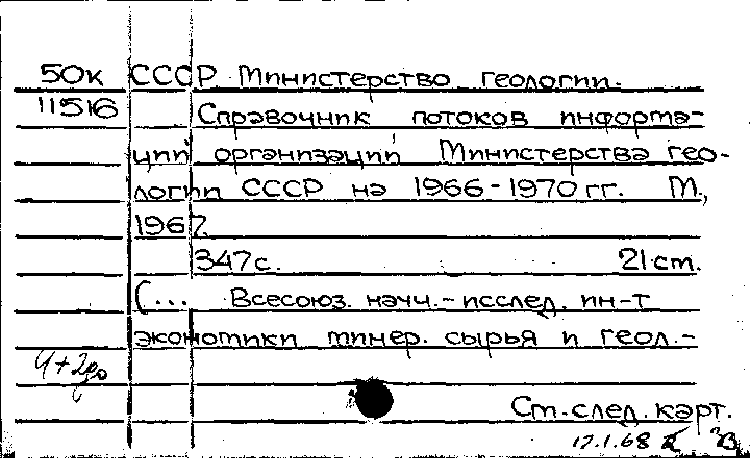 50к СССР Министерство геологии.
11516 Справочник потоков информа-
ции организаций Министерства гео-
логии СССР на 1966-1970 гг. М.,
1967.
347с. 21 см.
(... Всесоюз. науч.-исслед. ин-т
экономики минер. сырья и геол.-
См. след. карт.
17.1.68